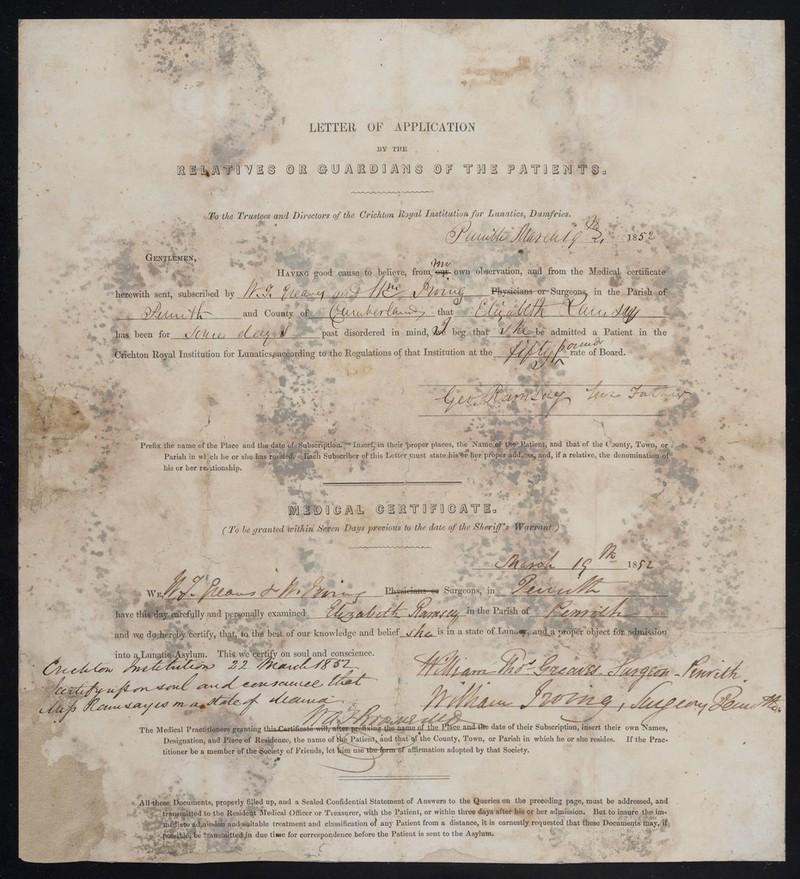 LETTER OF APPLICATION
BY THE
RELATIVES OR GUARDIANS OF THE PATIENTS.
To the Trustees and Directors of the Crichton Royal Institution for Lunatics, Dumfries.
Penrith March 19th 1852
GENTLEMEN,
HAVING good cause to believe, from my our own observation, and from the Medical certificate
herewith sent, subscribed by W. T. Greaves and Wm Irving Physicians or Surgeons, in the Parish of
Penrith and County of Cumberland, that Elizabeth Ramsay
has been for some days past disordered in mind, I beg that She be admitted a Patient in the
Crichton Royal Institution for Lunatics, according to the Regulations of that Institution at the fifty pounds rate of Board.
Geo. Ramsay her Father
Prefix the name of the Place and the date of Subscription. Insert, in their proper places, the Name of the Patient, and that of the County, Town, or
Parish in which he or she has resided. Each Subscriber of this Letter must state his or her proper address, and, if a relative, the denomination of
his or her relationship.
MEDICAL CERTIFICATE.
(To be granted within Seven Days previous to the date of the Sheriff's Warrant.)
March 19th 1852
WE, W. T. Greaves & W. Irving Physicians or Surgeons, in Penrith
have this day carefully and personally examined Elizabeth Ramsay in the Parish of Penrith
and we do hereby certify, that, to the best of our knowledge and belief she is in a state of Lunacy, and a proper object for admission
into a Lunatic Asylum. This we certify on soul and conscience.
Crichton Institution 22 March 1852
William Thos. Greaves. Surgeon - Penrith.
I certify upon soul and conscience that
Miss Ramsay is in a state of mania
William Irving, Surgeon, Penrith.
The Medical Practitioners granting this Certificate will, after prefixing the name of the Place and the date of their Subscription, insert their own Names,
Designation, and Place of Residence, the name of the Patient, and that of the County, Town, or Parish in which he or she resides. If the Prac-
titioner be a member of the Society of Friends, let him use the form of affirmation adopted by that Society.
All these Documents, properly filled up, and a Sealed Confidential Statement of Answers to the Queries on the preceding page, must be addressed, and
transmitted to the Resident Medical Officer or Treasurer, with the Patient, or within three days after his or her admission. But to insure the im-
mediate admission and suitable treatment and classification of any Patient from a distance, it is earnestly requested that these Documents may, if
possible, be transmitted in due time for correspondence before the Patient is sent to the Asylum.